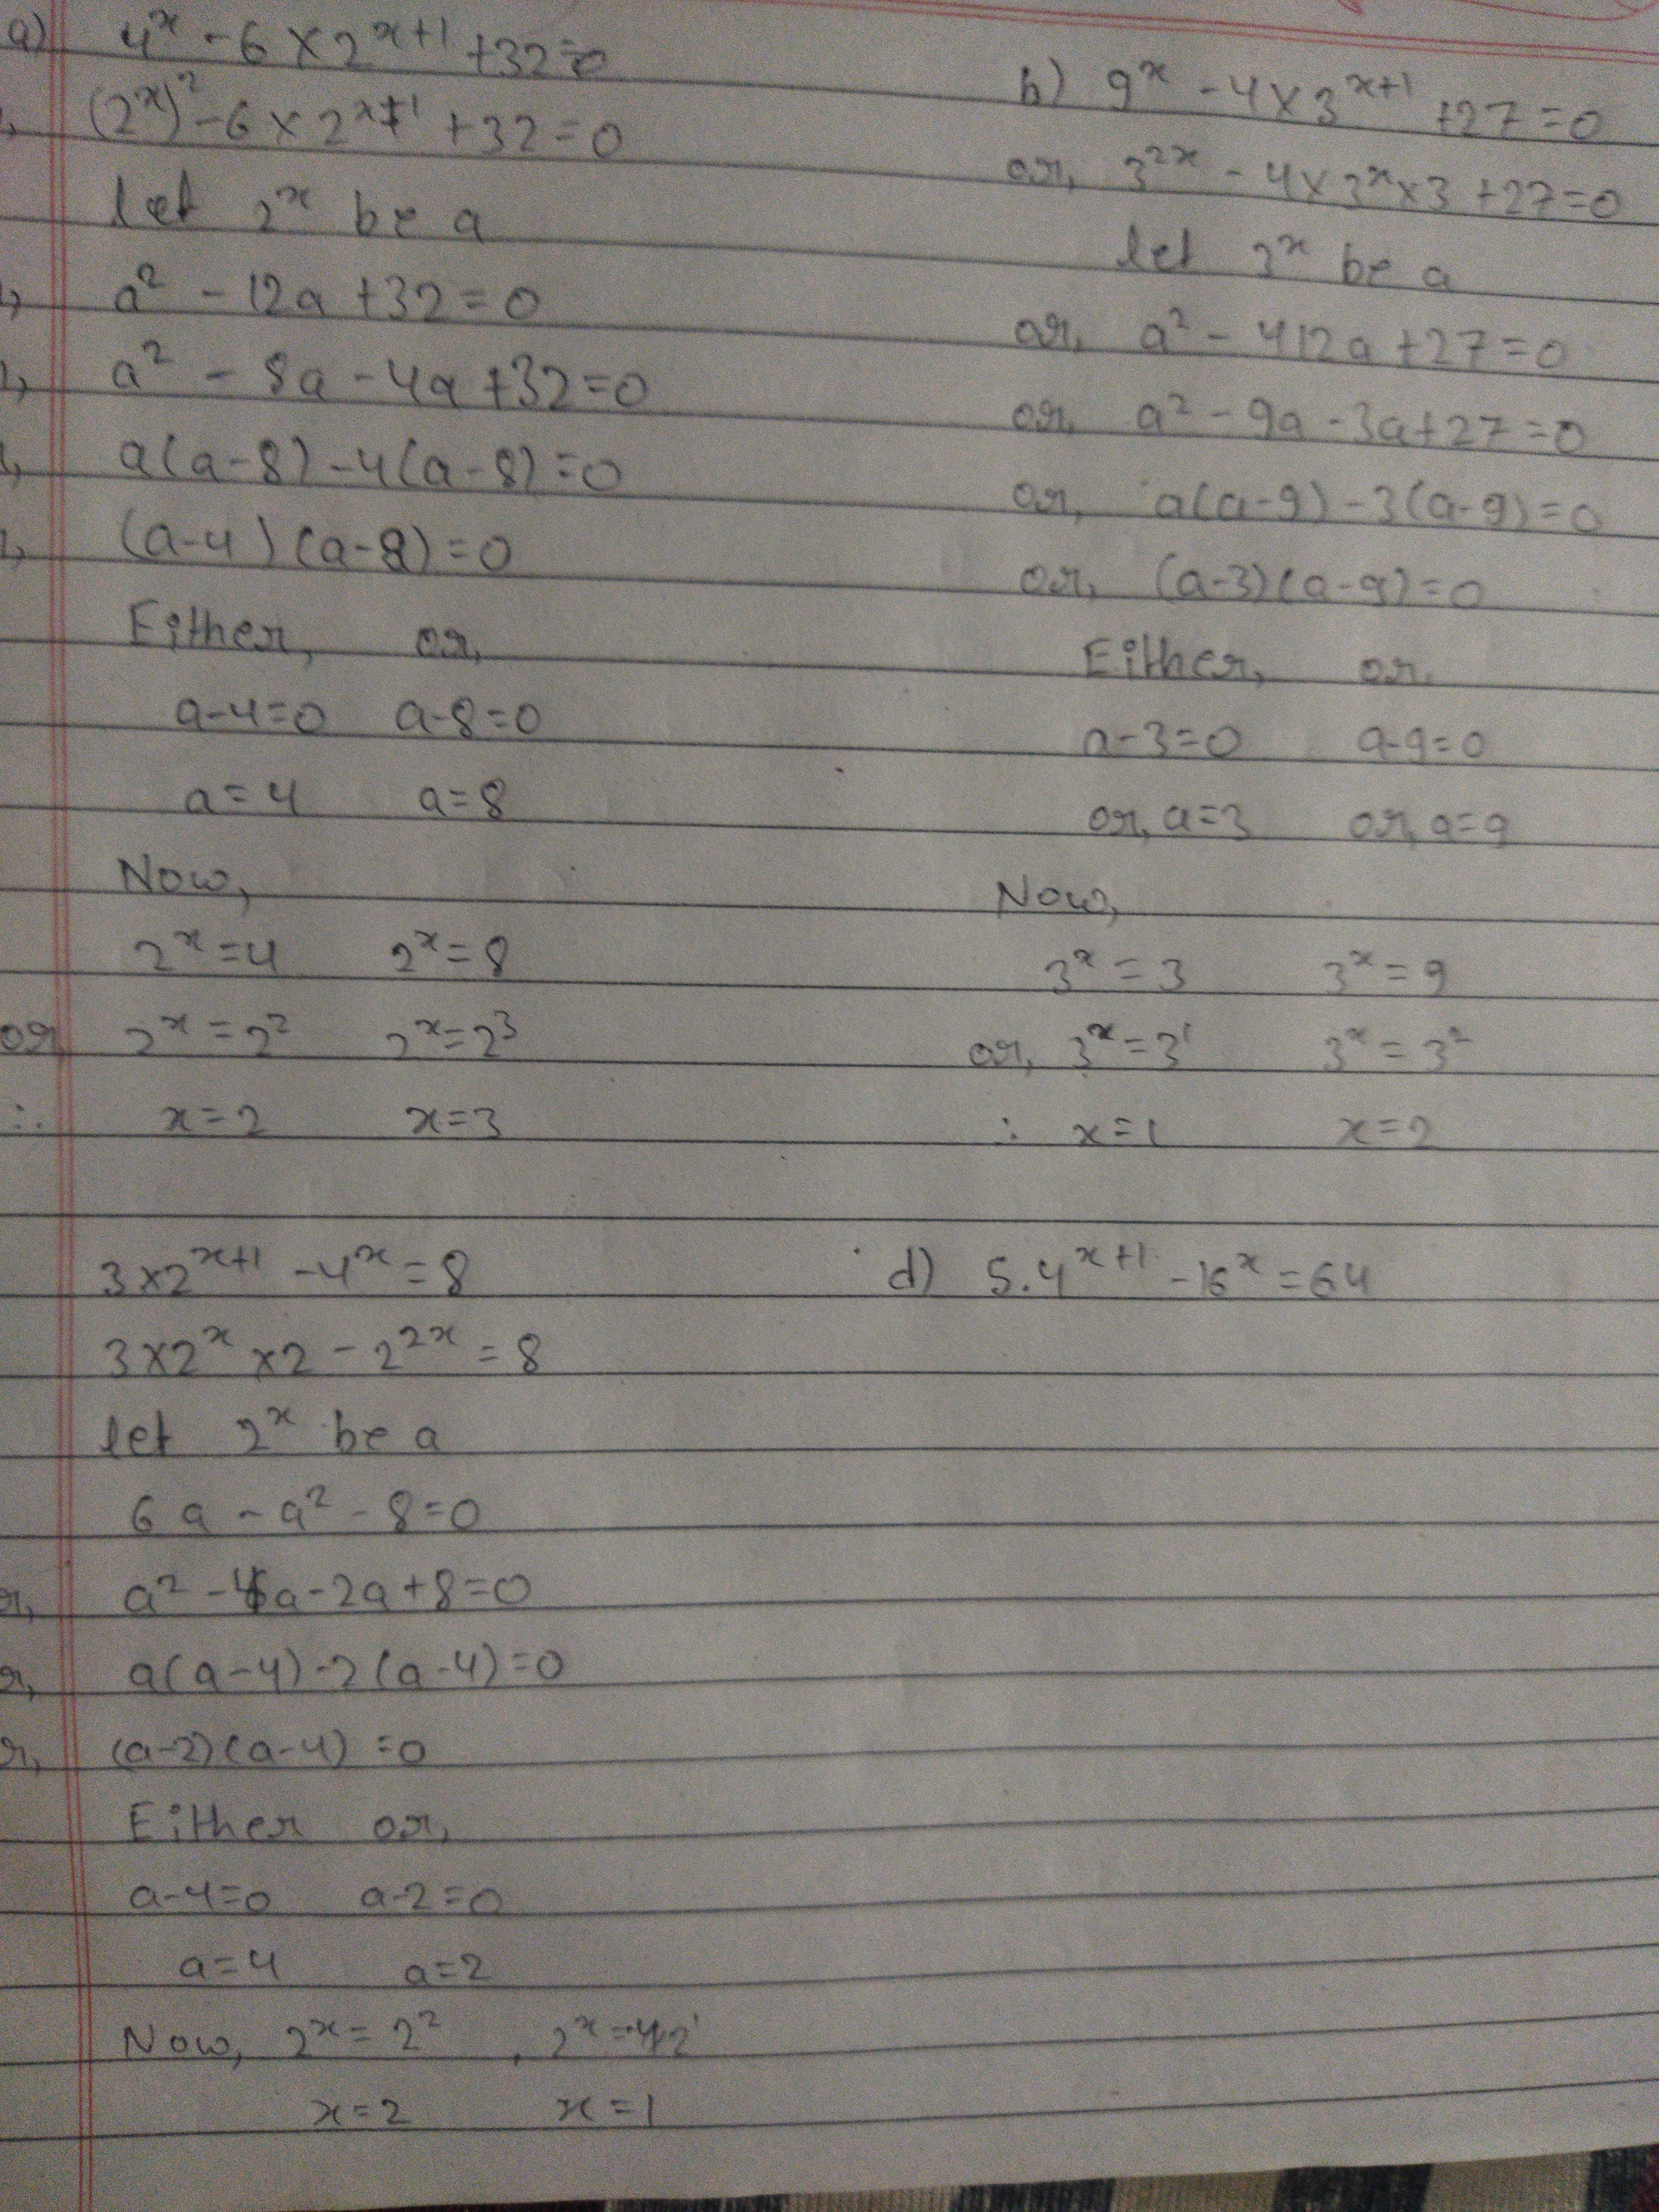 a) 4^x - 6 × 2^(x+1) + 32 = 0
(2^x)^2 - 6 × 2^(x+1) + 32 = 0
let 2^x be a
a^2 - 12a + 32 = 0
a^2 - 8a - 4a + 32 = 0
a(a-8) - 4(a-8) = 0
(a-4)(a-8) = 0
Either, or,
a-4=0 a-8=0
a=4 a=8
Now,
2^x=4 2^x=8
or 2^x=2^2 2^x=2^3
∴ x=2 x=3
b) 9^x - 4 × 3^(x+1) + 27 = 0
or, 3^(2x) - 4 × 3^x × 3 + 27 = 0
let 3^x be a
or, a^2 - 412a + 27 = 0
or, a^2 - 9a - 3a + 27 = 0
or, a(a-9) - 3(a-9) = 0
or, (a-3)(a-9) = 0
Either, or,
a-3=0 a-9=0
or, a=3 or, a=9
Now,
3^x=3 3^x=9
or, 3^x=3^1 3^x=3^2
∴ x=1 x=2
3×2^(x+1) - 4^x = 8
3×2^x×2 - 2^(2x) = 8
let 2^x be a
6a - a^2 - 8 = 0
a^2 - 4a - 2a + 8 = 0
a(a-4) - 2(a-4) = 0
(a-2)(a-4) = 0
Either or,
a-4=0 a-2=0
a=4 a=2
Now, 2^x=2^2, 2^x=2^1
x=2 x=1
d) 5.4^(x+1) - 16^x = 64